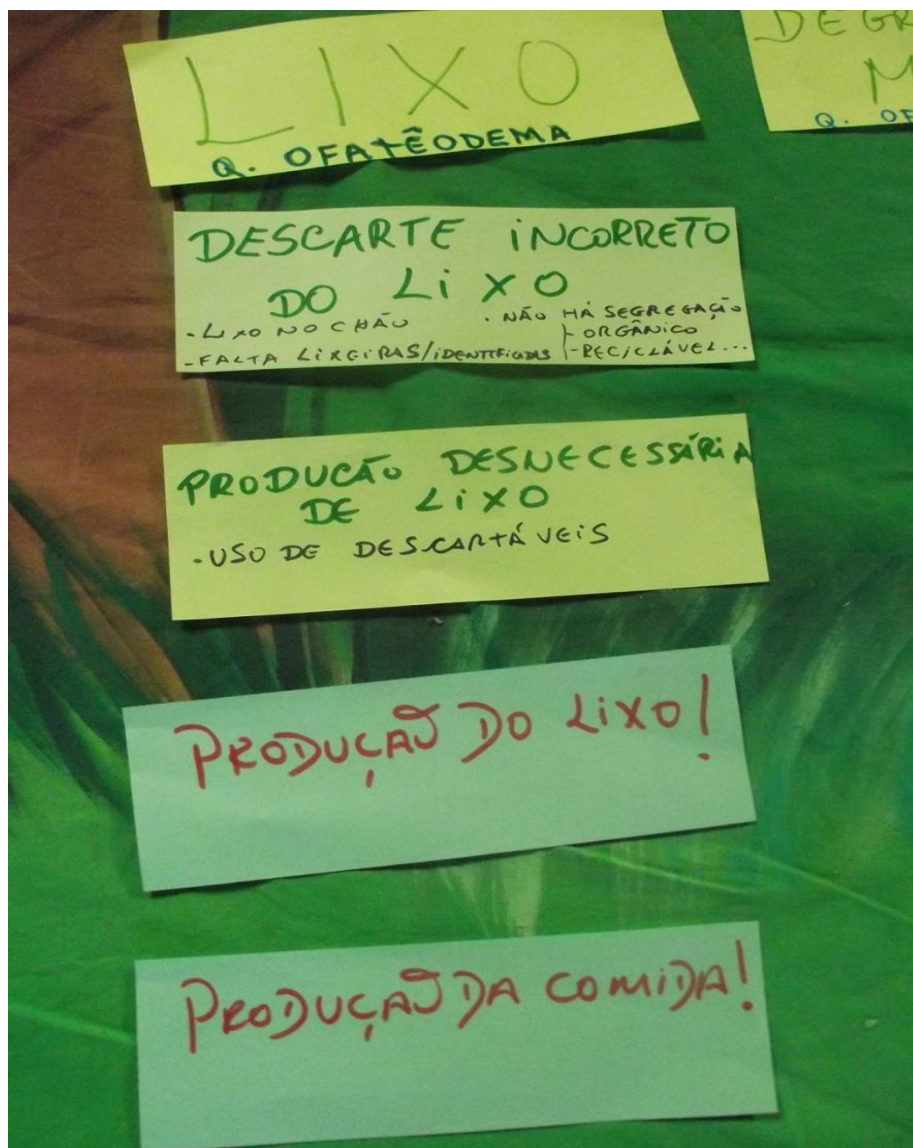 LIXO
Q. OFATÊODEMA
DEGR
M
Q. OF
DESCARTE INCORRETO
DO LIXO
- LIXO NO CHÃO
- FALTA LIXEIRAS/IDENTIFICADAS
. NÃO HÁ SEGREGAÇÃO
- ORGÂNICO
- RECICLÁVEL...
PRODUCÃO DESNECESSÁRIA
DE LIXO
. USO DE DESCARTÁVEIS
PRODUÇÃO DO LIXO!
PRODUÇÃO DA COMIDA!